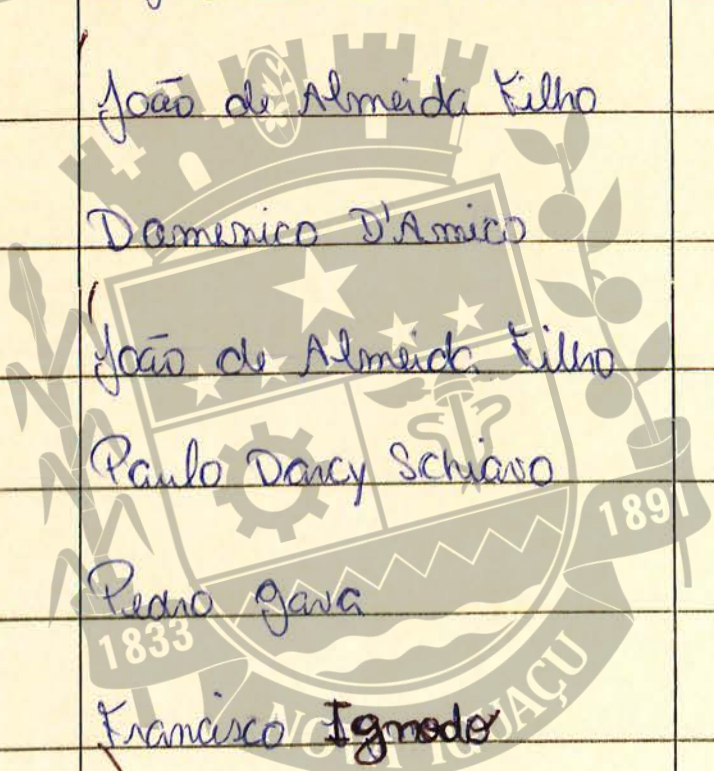 João de Almeida Filho
Domenico D'Amico
João de Almeida Filho
Paulo Darcy Schiavo
1891
Pedro Gava
1833
Francisco Ignodo
NOVA IGUAÇU